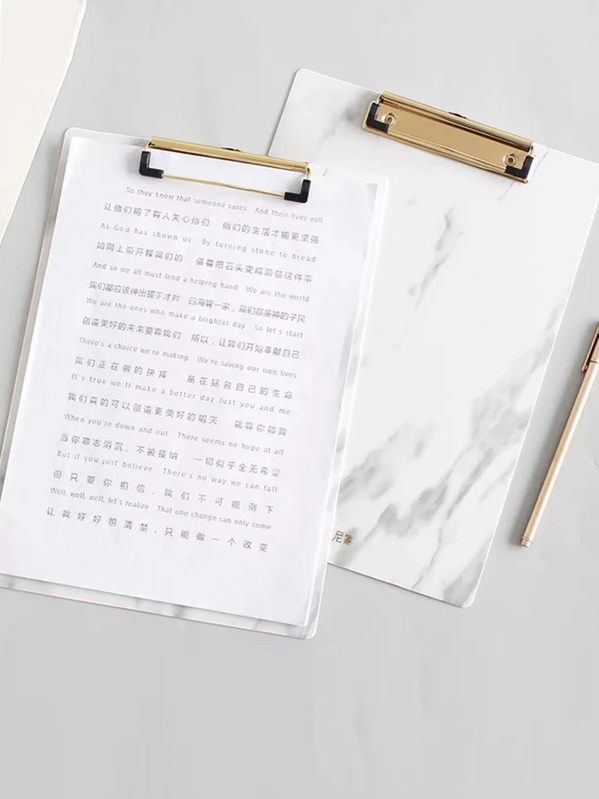 So they know that someone cares And their lives will
让他们明了有人关心他们 他们的生活才能更坚强
As God has shown us By turning stone to bread
如同上帝开释我们的 借着把石头变成面包这件事
And so we all must lend a helping hand We are the world
我们都应该伸出援手才对 四海皆一家，我们都是神的子民
We are the ones who make a brighter day So let's start
创造美好的未来要靠我们 所以，让我们开始奉献自己
There's a choice we're making We're saving our own lives
我们正在做的抉择 是在拯救自己的生命
It's true we'll make a better day Just you and me
我们真的可以创造更美好的明天 就靠你和我
When you're down and out There seems no hope at all
当你意志消沉，不被接纳 一切似乎全无希望
But if you just believe There's no way we can fall
但只要你相信，我们不可能倒下
Well, well, well, let's realize That one change can only come
让我好好想清楚，只能做一个改变